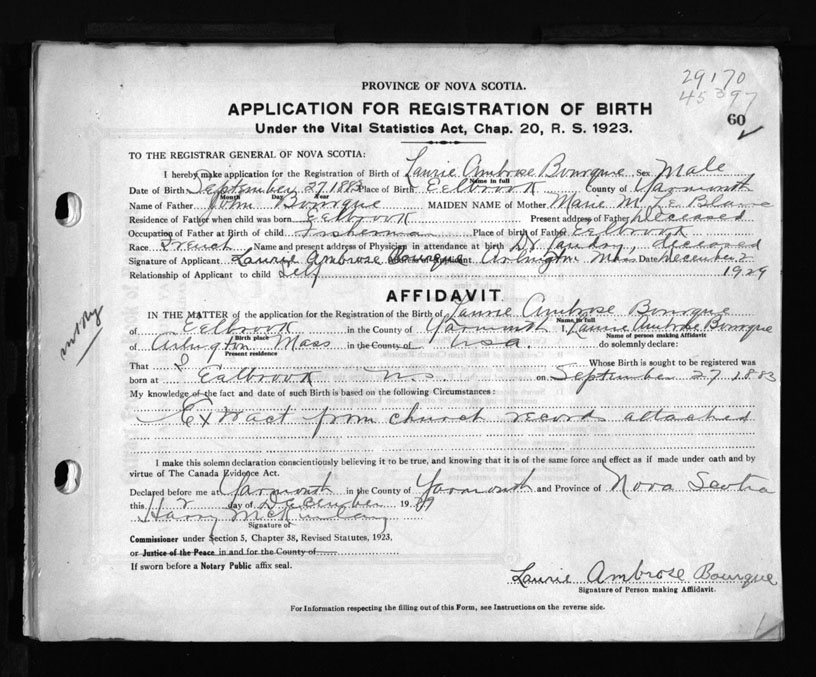 29170
45397
60
PROVINCE OF NOVA SCOTIA.
APPLICATION FOR REGISTRATION OF BIRTH
Under the Vital Statistics Act, Chap. 20, R. S. 1923.
TO THE REGISTRAR GENERAL OF NOVA SCOTIA:
I hereby make application for the Registration of Birth of Laurie Ambrose Bourque Sex Male
Name in full
Date of Birth September 27 1883 Place of Birth Eelbrook County of Yarmouth
Month Day Year
Name of Father John Bourque MAIDEN NAME of Mother Marie M. Le Blanc
Residence of Father when child was born Eelbrook Present address of Father Deceased
Occupation of Father at Birth of child Fisherman Place of birth of Father Eelbrook
Race French Name and present address of Physician in attendance at birth Dr Landry, deceased
Signature of Applicant Laurie Ambrose Bourque Address of Applicant Arlington Mass Date December 2
1929
Relationship of Applicant to child Self
AFFIDAVIT.
IN THE MATTER of the application for the Registration of the Birth of Laurie Ambrose Bourque
Name in full
of Eelbrook in the County of Yarmouth I, Laurie Ambrose Bourque
Birth place Name of person making Affidavit
of Arlington Mass in the County of U.S.A. do solemnly declare:
Present residence
That I Whose Birth is sought to be registered was
born at Ealbrook N.S. on September 27 1883
My knowledge of the fact and date of such Birth is based on the following Circumstances:
Extract from church records attached
I make this solemn declaration conscientiously believing it to be true, and knowing that it is of the same force and effect as if made under oath and by
virtue of The Canada Evidence Act.
Declared before me at Yarmouth in the County of Yarmouth and Province of Nova Scotia
this 2 day of December 1929
Harry McKinlay
Signature of
Commissioner under Section 5, Chapter 38, Revised Statutes, 1923,
or Justice of the Peace in and for the County of
If sworn before a Notary Public affix seal.
Laurie Ambrose Bourque
Signature of Person making Affidavit.
For Information respecting the filling out of this Form, see Instructions on the reverse side.